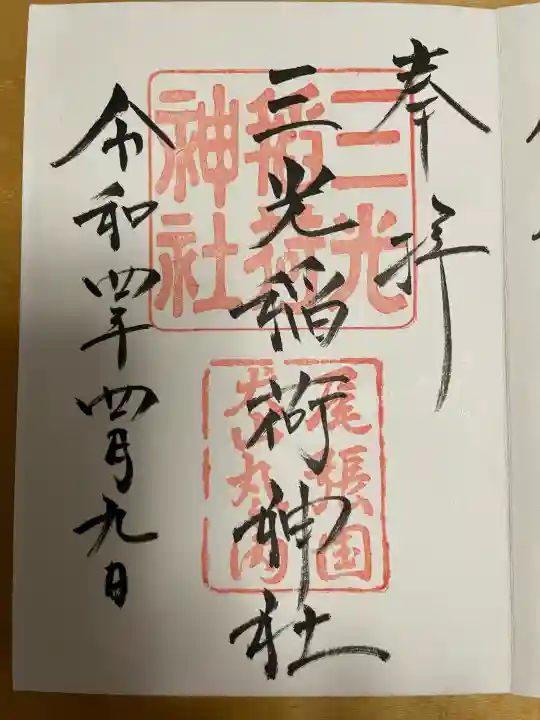 奉拝
三光稲荷神社
令和四年四月九日
三光
稲荷
神社
尾張国
丸の内